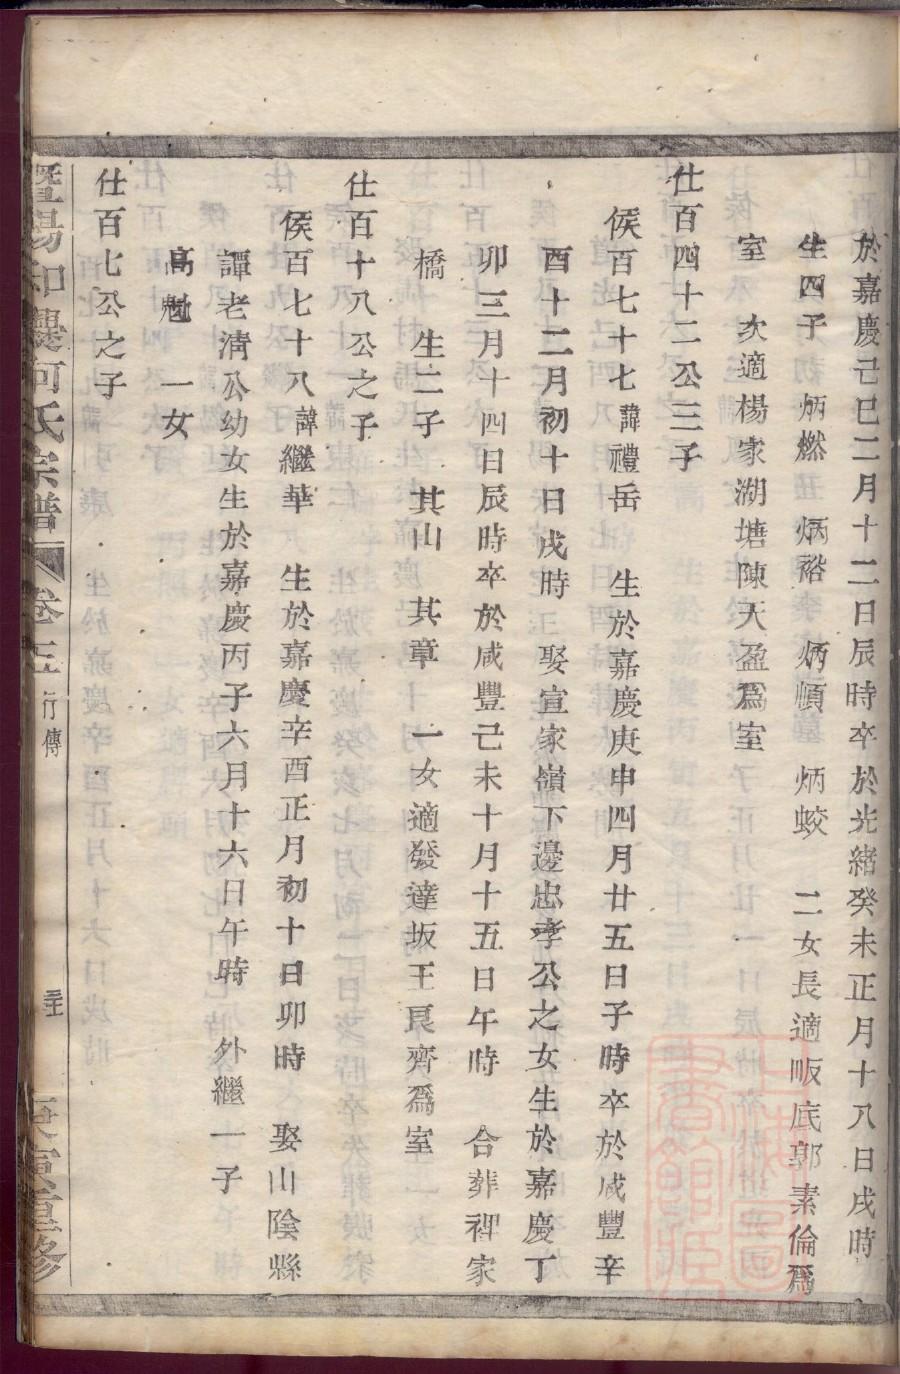 於嘉慶己巳二月十二日辰時卒於光緒癸未正月十八日戌時
生四子 炳燃 炳裕 炳順 炳蛟 二女長適畈底郭素倫爲
室 次適楊家湖塘陳天盈爲室
仕百四十二公三子
侯百七十七諱禮岳 生於嘉慶庚申四月廿五日子時卒於咸豐辛
酉十二月初十日戌時 娶宣家嶺下邊忠孝公之女生於嘉慶丁
卯三月十四日辰時卒於咸豐己未十月十五日午時 合葬裡家
橋 生二子 其山 其章 一女適發達坂王艮齊爲室
仕百十八公之子
侯百七十八諱繼華 生於嘉慶辛酉正月初十日卯時 娶山陰縣
譚老淸公幼女生於嘉慶丙子六月十六日午時 外繼一子
高魁 一女
仕百七公之子
暨陽和 何氏宗譜 卷三 行傳